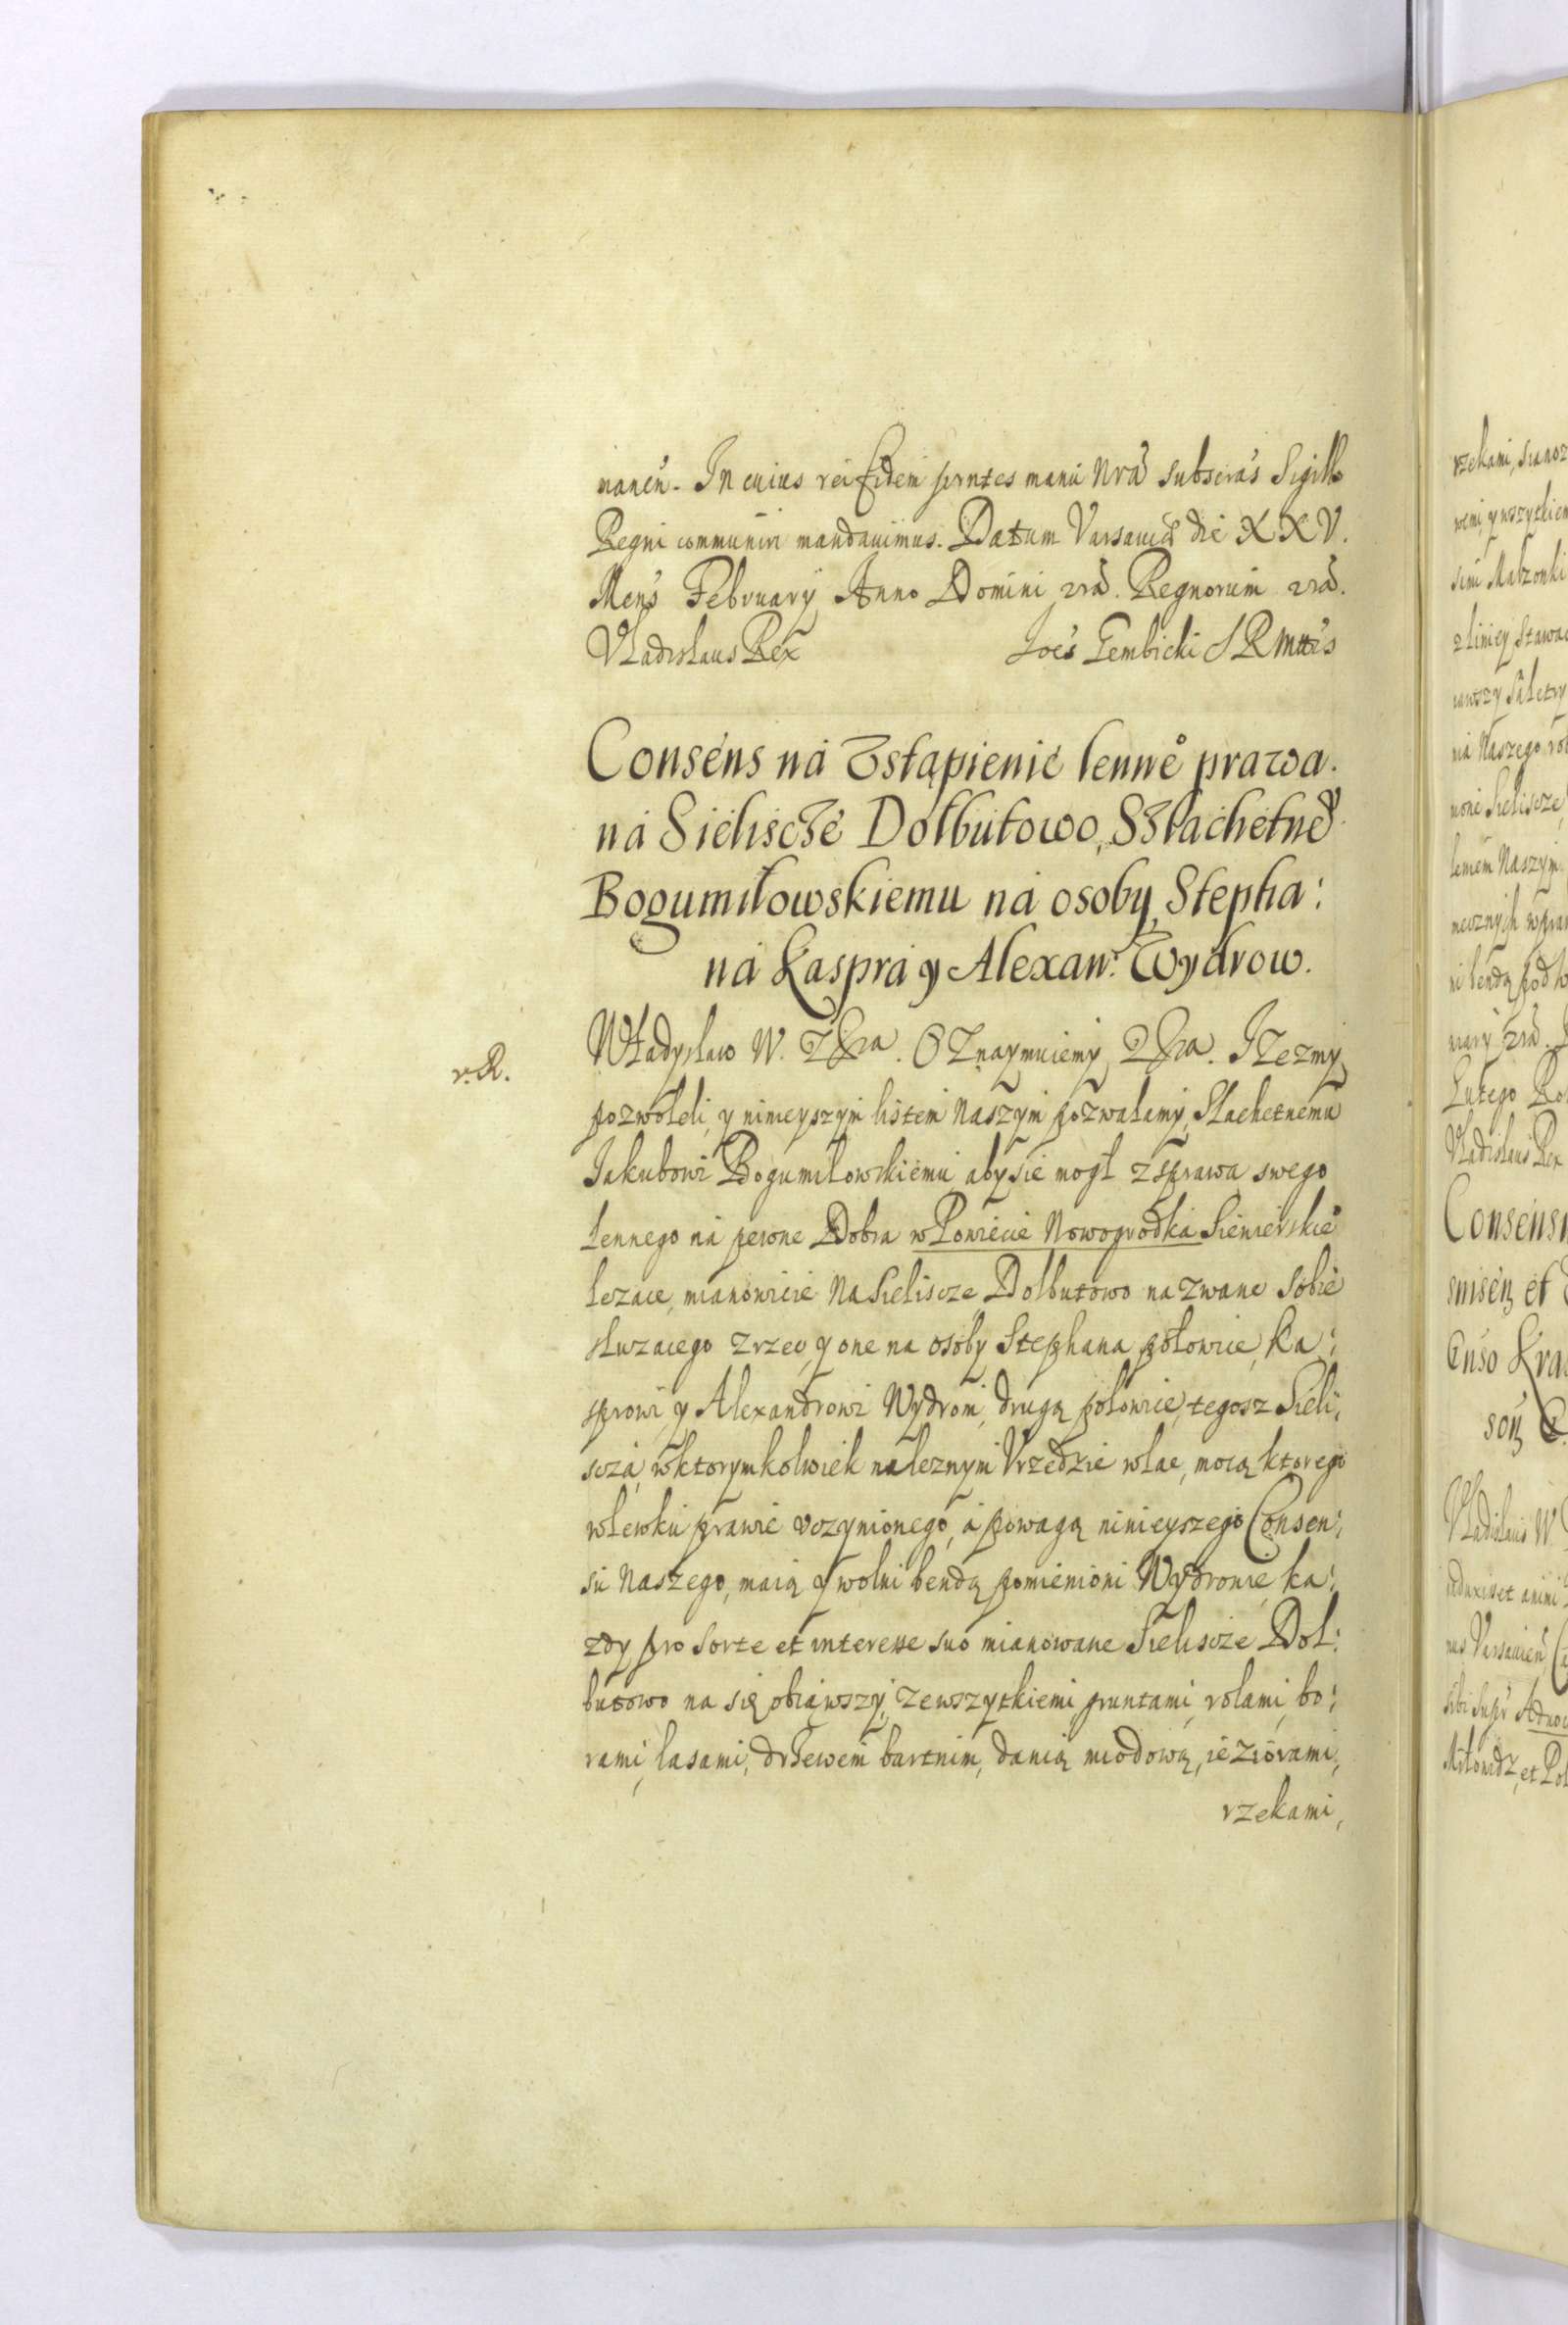 nanen̄. In cuius rei fidem prntes manu Nrā subscras Sigillo
Regni communiri mandauimus. Datum Varsauiæ die XXV.
Mens Februarÿ Anno Domini vrā. Regnorum vrā.
Vladislaus Rex Joēs Gembicki S R Mttis
Consens ná Vstąpienié lenne° prawa.
ná Siéliscże Dołbutowo, Szlachetne°
Bogumiłowskiemu ná osoby Stepha:
ná Kasprá y Alexan: Wydrow.
v. R.
Władysław W. Oznaymuiemy Iżezmy
pozwoleli, y ninieyszym listem Naszym pozwalamy, Slachetnemu
Jakubowi Bogumiłowskiemu, aby sie mogł z prawa swego
lennego ná pewne Dobra w Powiecie Nowogrodká Siewierskie°
leżace, mianowicie Na Sieliscze Dolbutowo nazwane sobie
służacego zrzec, y one na osoby Stephana połowice, Ka:
sprowi y Alexandrowi Wydrom, drugą połowice, tegosz Sieli:
scżá, w ktorymkolwiek nalezny̆m Vrzędzie wlac, mocą ktorego
wlewku prawie vczynionego, á powagą ninieyszego Consen:
su Naszego, maią y wolni bendą pomienioni Wydrowie ka:
zdy pro sorte et interesse suo mianowane Sieliscze Dol:
butowo na się obiąwszy, zewszytkiemi, gruntami, rolami, bo:
rami, lasami, drzewem bartnim, danią miodową, ieziorami,
rzekami,
rzekami,
Naszego
Sieliscze
lemem Naszym
Lutego
Vladislaus Rex
Consens
et
Vladislaus W.
et